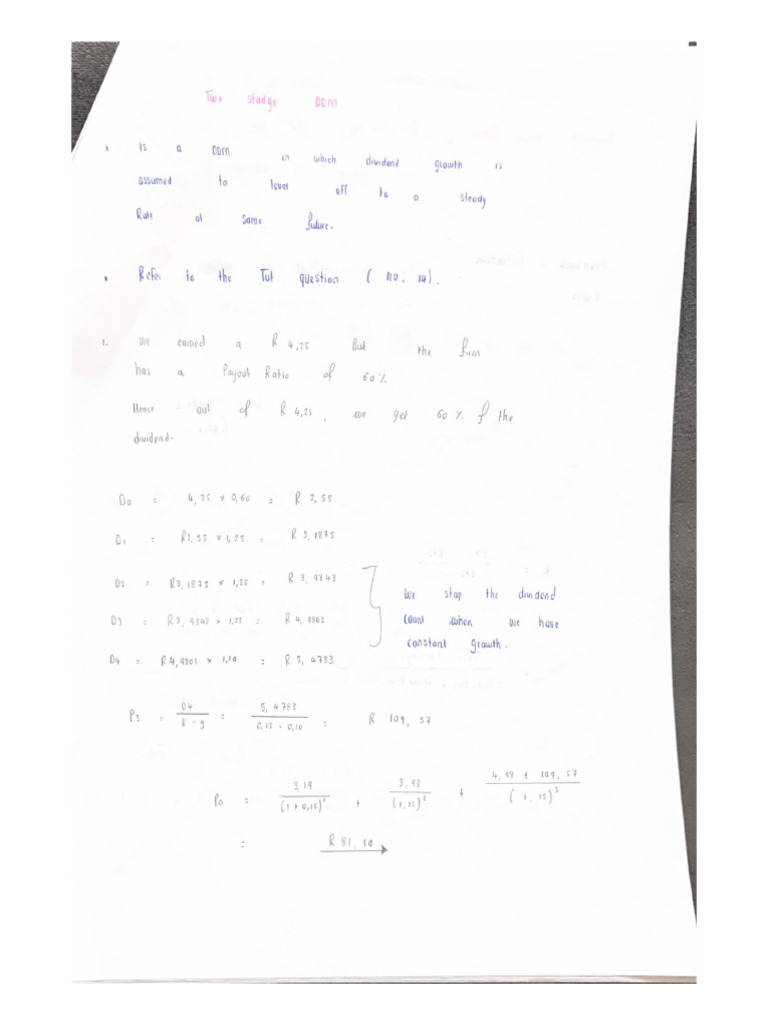 Two stadge DDM
Is a DDM in which dividend growth is
assumed to level off to a steady
Rate at some future.
Refer to the Tut question ( no. 14).
1. We earned a R 4,25 But the firm
has a Payout Ratio of 60%.
Hence out of R 4,25, we get 60% of the
dividend.
D0 = 4,25 x 0,60 = R 2,55
D1 = R2,55 x 1,25 = R 3,1875
D2 = R3,1875 x 1,25 = R 3,9843
We stop the dividend
D3 = R3,9843 x 1,25 = R 4,9803
count when we have
constant growth.
D4 = R4,9803 x 1,10 = R 5,4783
P3 = D4 / R - g = 5,4783 / 0,15 - 0,10 = R 109,57
P0 = 3,19 / (1 + 0,15)² + 3,98 / (1,15)² + 4,98 + 109,57 / (1,15)²
= R 81,10